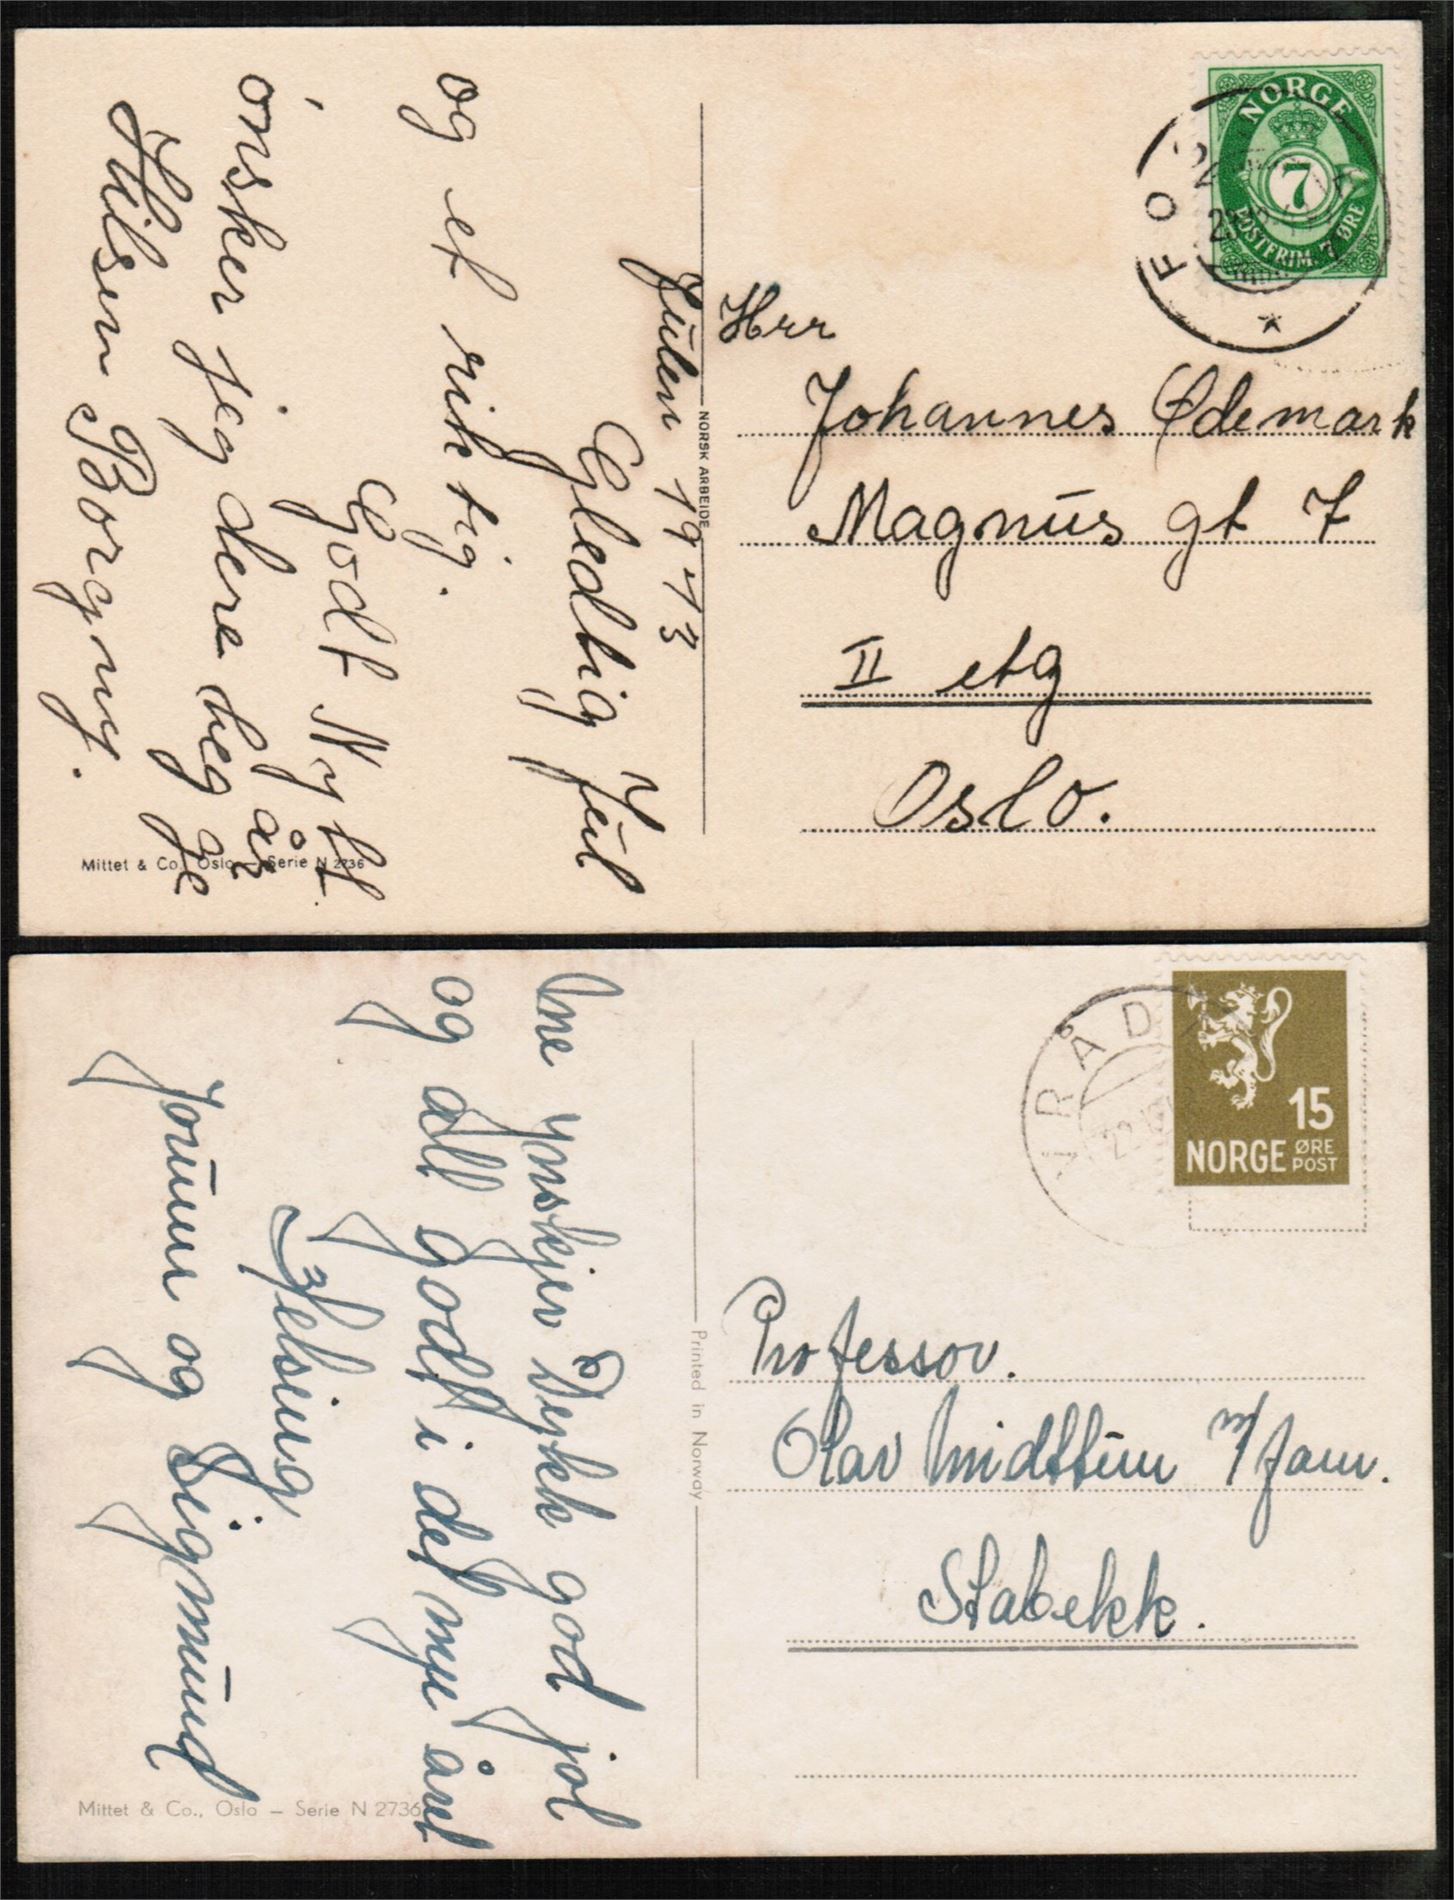 NORGE
7
POSTFRIM. 7 ØRE
Julen 1943
Gledelig Jul
og et riktig
Godt Nytt år
ønsker jeg dere begge
Hilsen Borgny.
NORSK ARBEIDE
Herr
Johannes Ødemark
Magnus gt 7
II etg
Oslo.
Mittet & Co., Oslo — Serie N 2736
VRÅD
15
NORGE ØRE POST
ynskjer Dykk god jol
og alt godt i det nye året
Helsing
Jorunn og Sigmund
Printed in Norway
Professor.
Olav Midttun m/fam.
Stabekk.
Mittet & Co., Oslo – Serie N 2736